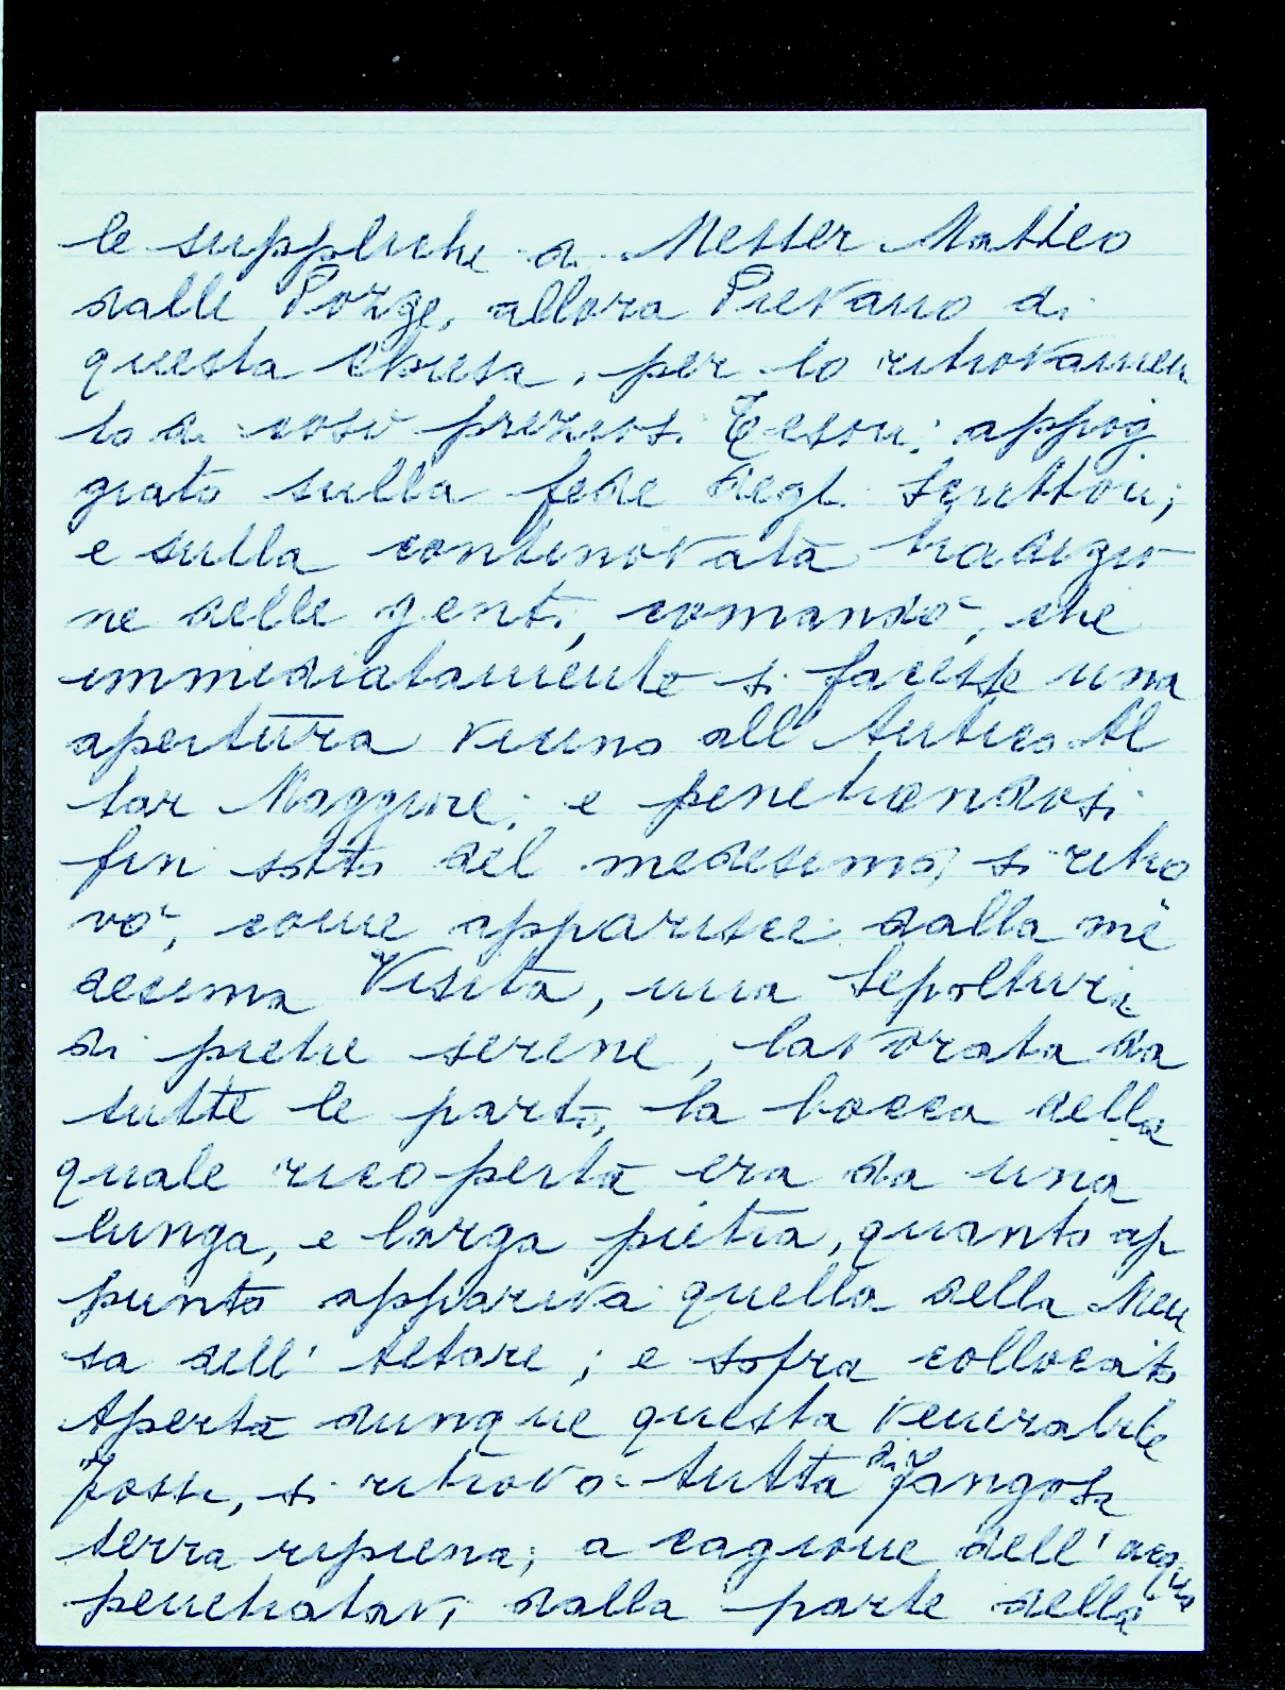 le suppliche di Messer Matteo
dalle Pozze, allora Pievano di
questa Chiesa, per lo ritrovamen
to di cosi preziosi Tesori; appog
giato sulla fede degl. Scrittori;
e sulla continovata tradizio
ne delle genti, comandò, che
immediatamente si facesse una
apertura vicino all' Antico Al
tar Maggiore; e penetrandosi
fin sotto del medesimo, si ritro
vò, come apparisce dalla me
desima Visita, una Sepoltura
di pietre serene, lavorata da
tutte le parti, la bocca della
quale ricoperta era da una
lunga, e larga pietra, quanto ap
punto appariva quella della Men
sa dell' Altare; e sopra collocata
Aperta dunque questa venerabile
Fossa, si ritrovò tutta di fangosa
terra ripiena; a cagione dell' acqua
penetratavi dalla parte della